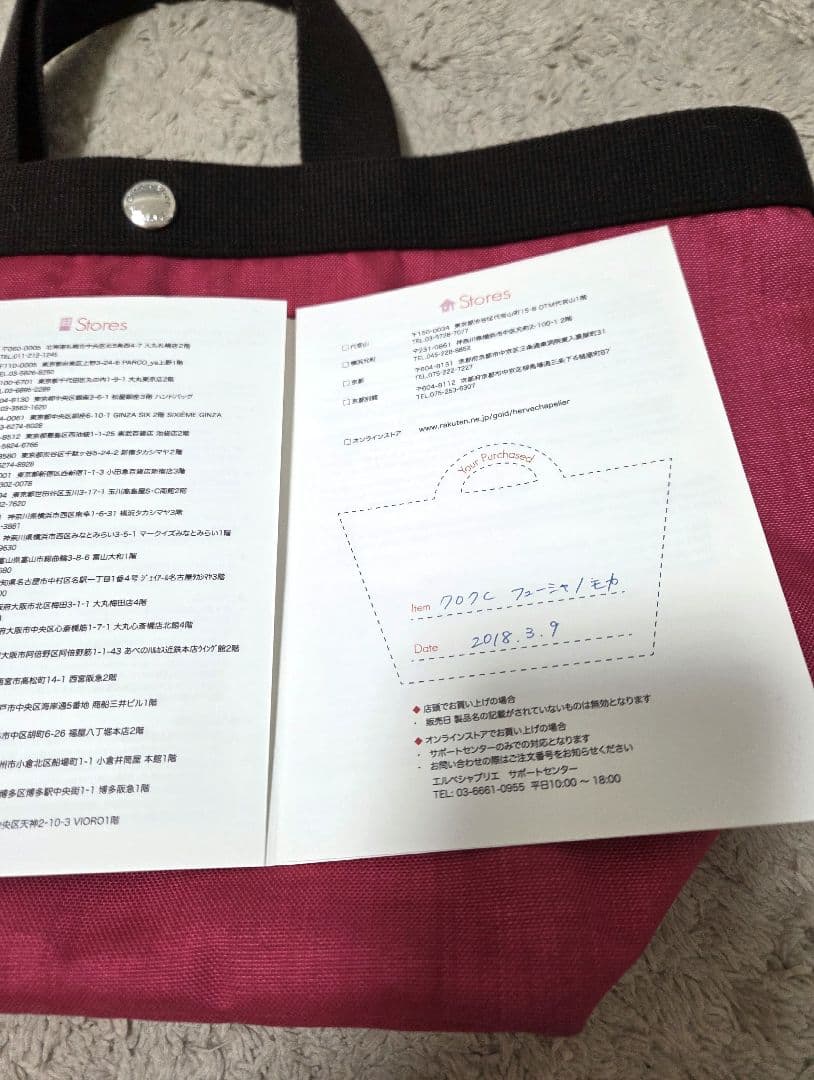 Stores
〒060-0005 北海道札幌市中央区北5条西4-7 大丸札幌店2階
TEL.011-212-1245
〒110-0005 東京都台東区上野3-24-6 PARCO_ya上野1階
EL.03-5826-8250
100-6701 東京都千代田区丸の内1-9-1 大丸東京店2階
L.03-6895-2289
04-8130 東京都中央区銀座3-6-1 松屋銀座3階 ハンドバッグ
03-3563-1620
4-0061 東京都中央区銀座6-10-1 GINZA SIX 2階 SIXIÈME GINZA
-6274-6028
-8512 東京都豊島区西池袋1-1-25 東武百貨店 池袋店2階
-5924-6766
3580 東京都渋谷区千駄ヶ谷5-24-2 新宿タカシマヤ2階
5274-8928
001 東京都新宿区西新宿1-1-3 小田急百貨店新宿店3階
302-0078
94 東京都世田谷区玉川3-17-1 玉川高島屋S・C南館2階
2-7620
神奈川県横浜市西区南幸1-6-31 横浜タカシマヤ3階
-3881
神奈川県横浜市西区みなとみらい3-5-1 マークイズみなとみらい1階
9630
富山県富山市総曲輪3-8-6 富山大和1階
580
知県名古屋市中村区名駅一丁目1番4号 ジェイアール名古屋タカシマヤ3階
00
阪府大阪市北区梅田3-1-1 大丸梅田店4階
府大阪市中央区心斎橋筋1-7-1 大丸心斎橋店北館4階
大阪市阿倍野区阿倍野筋1-1-43 あべのハルカス近鉄本店ウイング館2階
西宮市高松町14-1 西宮阪急2階
戸市中央区海岸通5番地 商船三井ビル1階
市中区胡町6-26 福屋八丁堀本店2階
州市小倉北区船場町1-1 小倉井筒屋 本館1階
博多区博多駅中央街1-1 博多阪急1階
央区天神2-10-3 VIORO1階
Stores
□代官山 〒150-0034 東京都渋谷区代官山町15-8 OTM代官山1階
TEL.03-5728-7077
□横浜元町 〒231-0861 神奈川県横浜市中区元町2-100-1 2階
TEL.045-228-8852
□京都
TEL.075-222-7227
□京都別館
TEL.075-253-0307
□オンラインストア www.rakuten.ne.jp/gold/hervechapelier
Your Purchased
Item 707C フューシャ/モカ
Date 2018.3.9
◆店頭でお買い上げの場合
・ 販売日 製品名の記載がされていないものは無効となります
◆オンラインストアでお買い上げの場合
・ サポートセンターのみでの対応となります
・ お問い合わせの際はご注文番号をお知らせください
エルベシャプリエ サポートセンター
TEL: 03-6661-0955 平日10:00 ～ 18:00